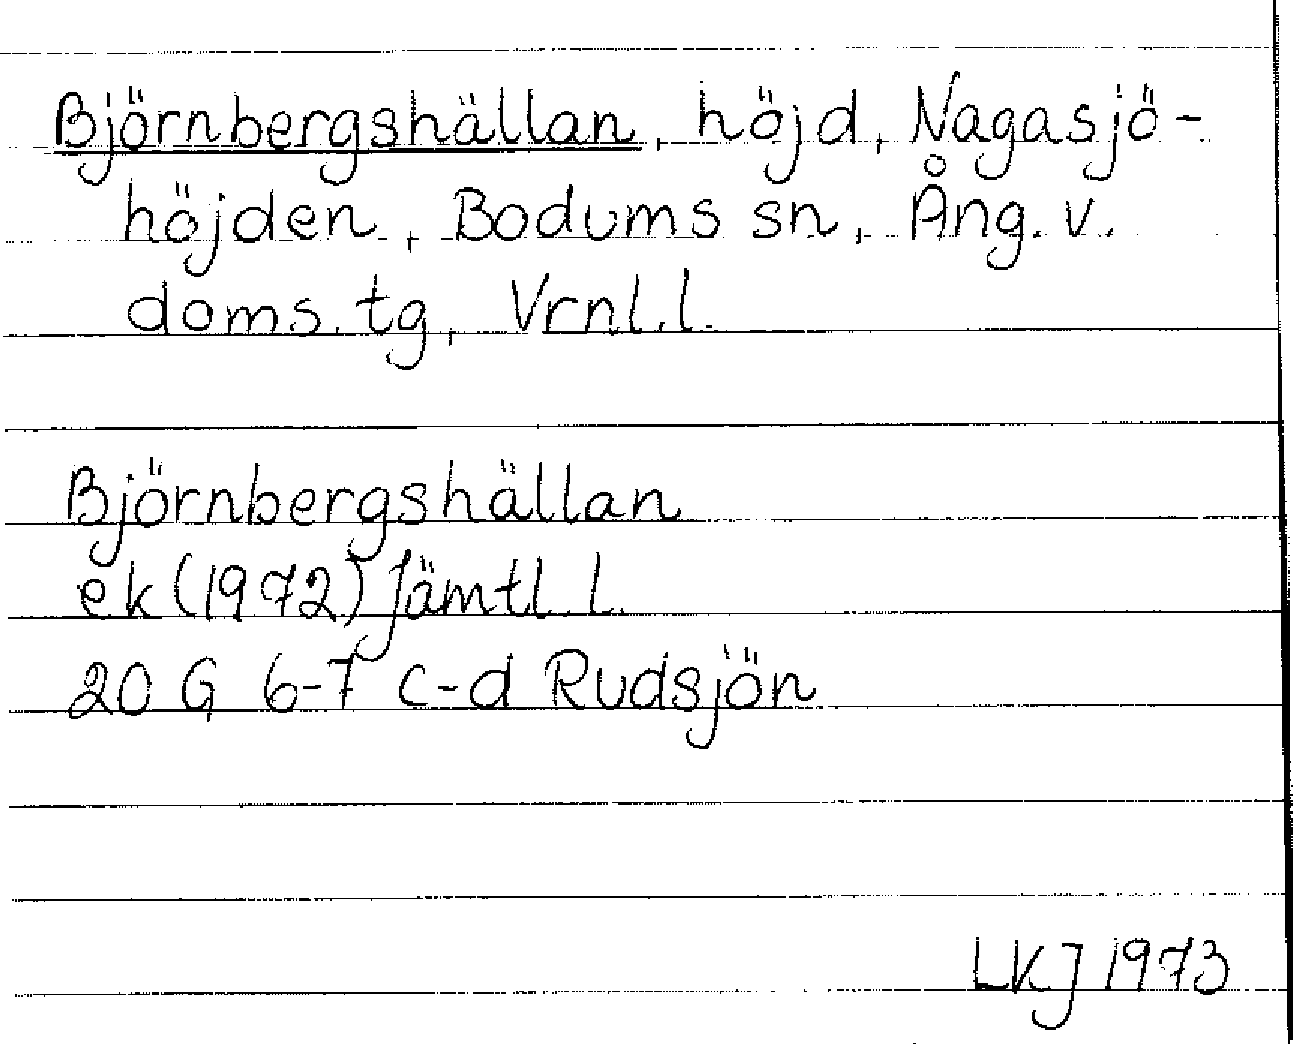 Björnbergshällan, höjd, Nagasjö-
höjden, Bodums sn, Ång. v.
doms. tg, Vrnl. l.
Björnbergshällan
ek (1972) Jämtl. l.
20 G 6-7 c-d Rudsjön
LKJ 1973